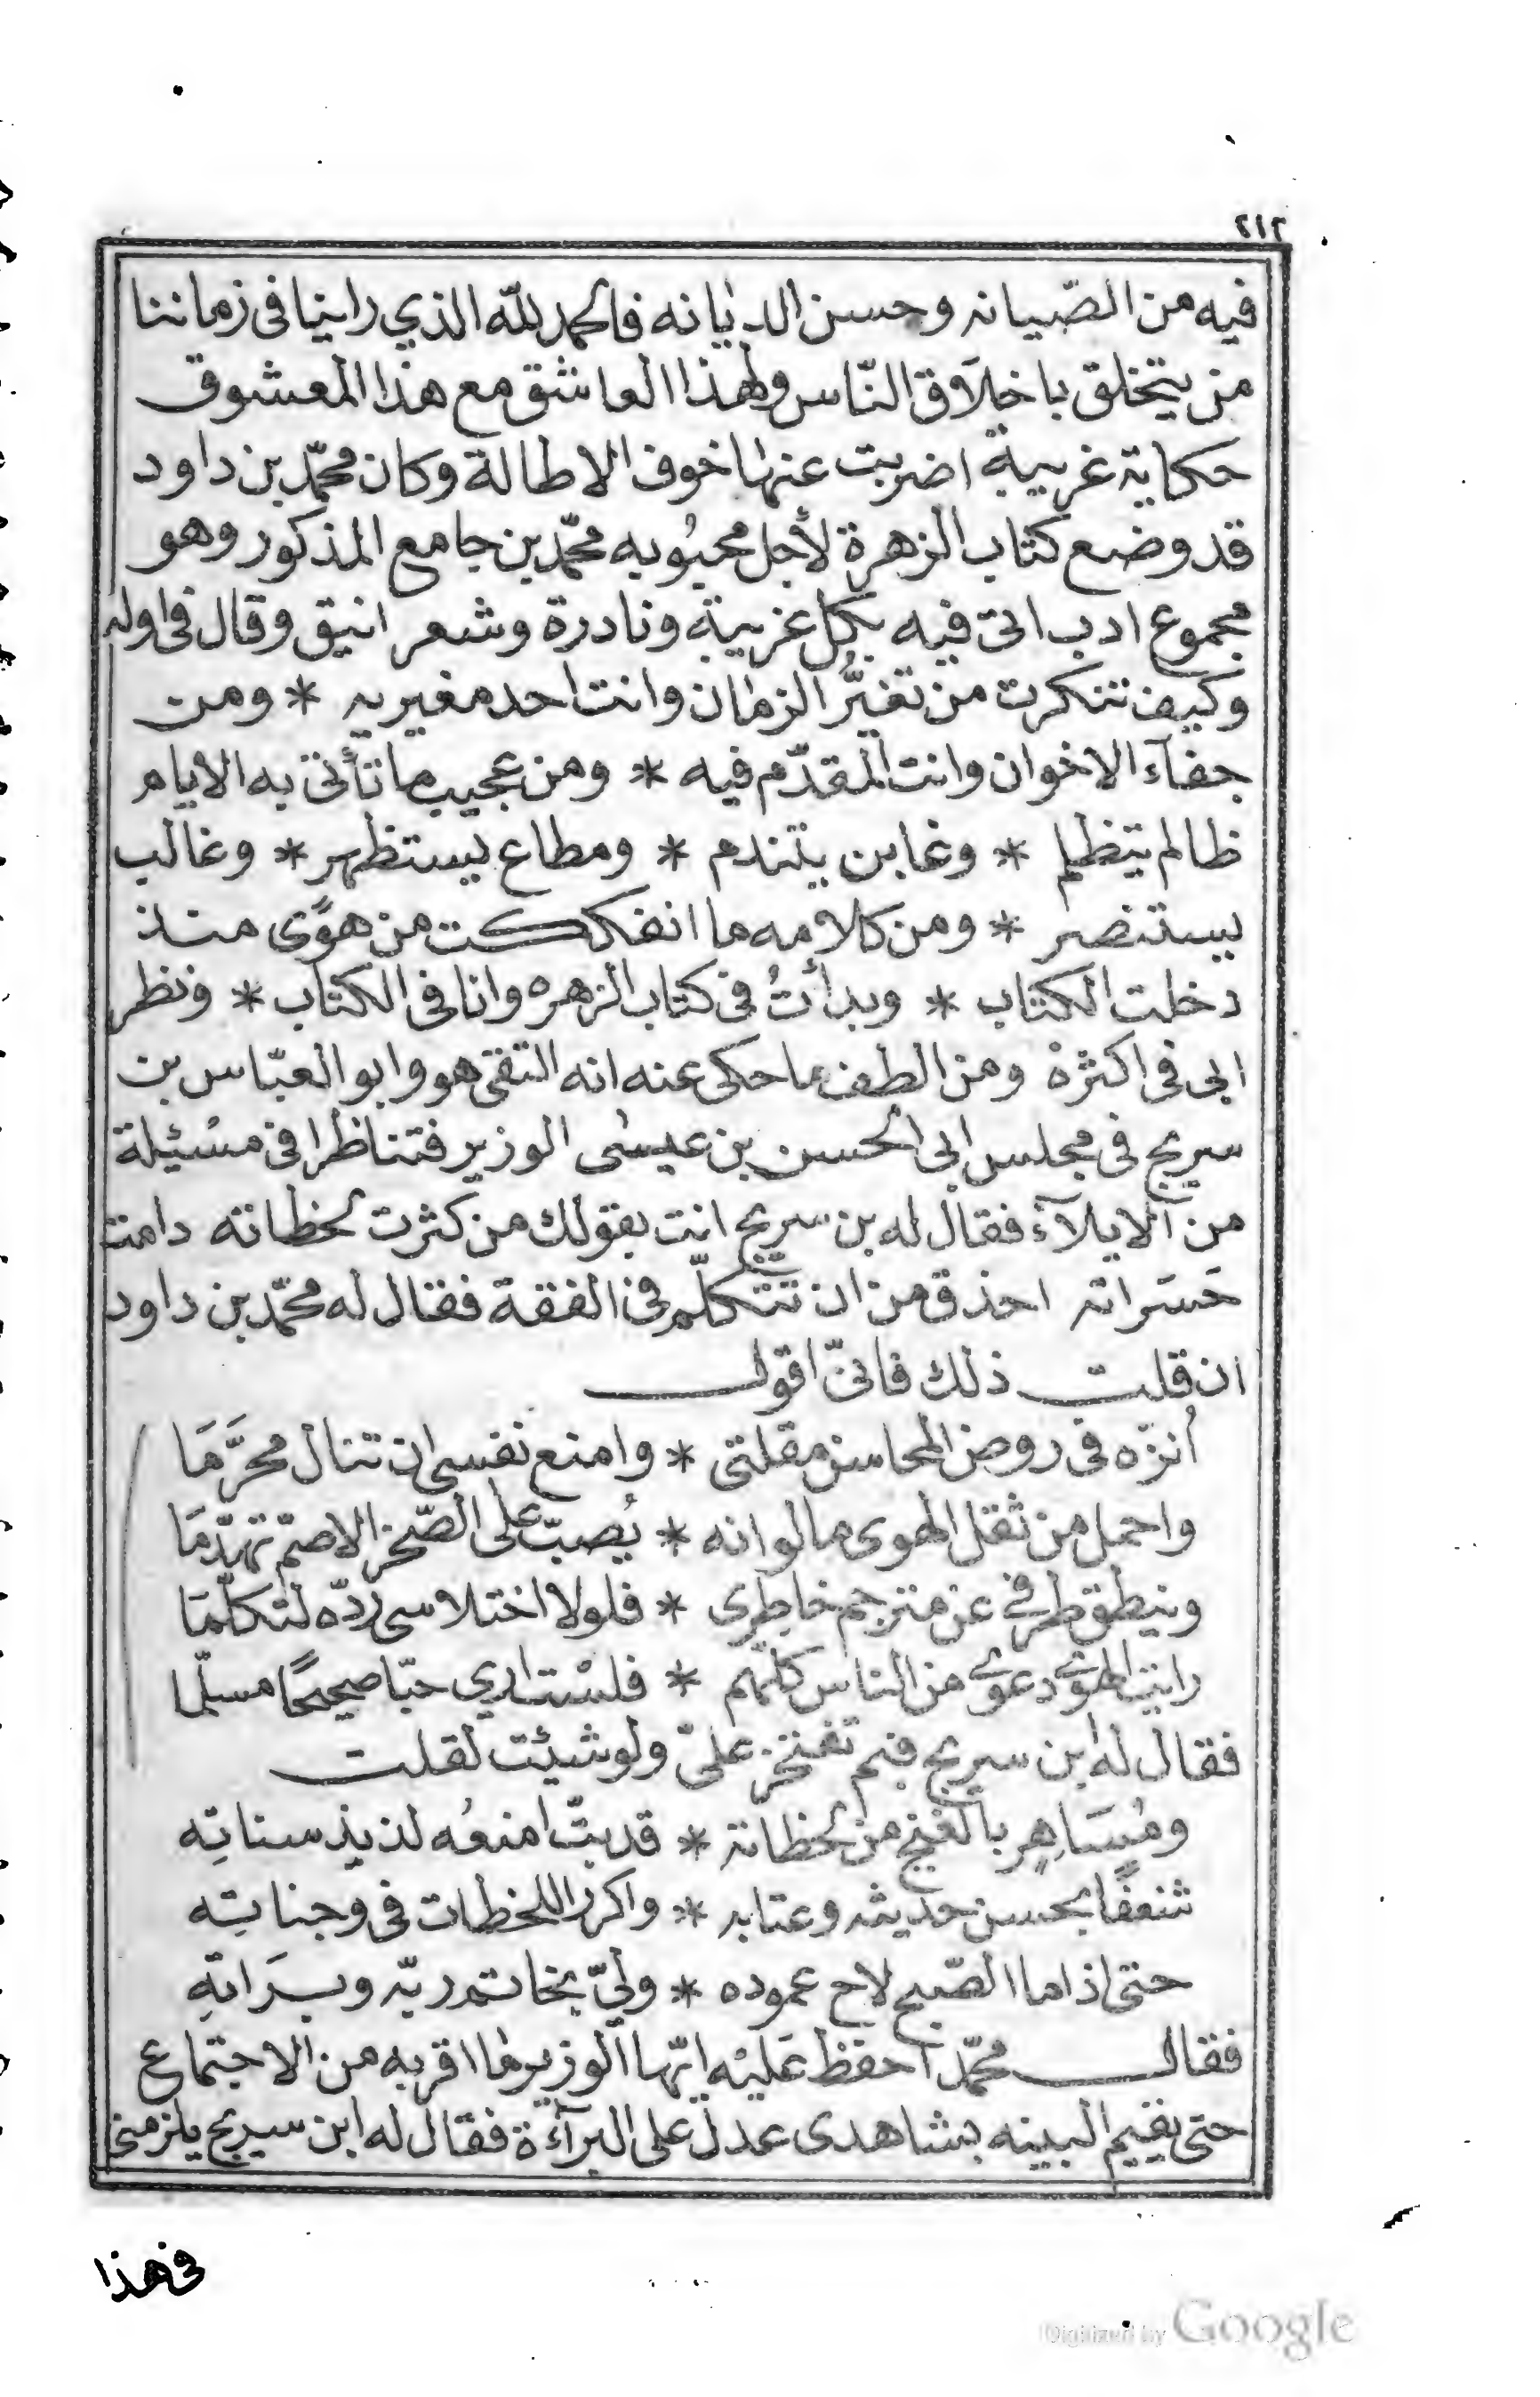 ٢١٢
فيه من الصّيانه وحسن الديانه فالحمد للّه الذي راينا فى زماننا
من يتخلق باخلاق النّاس ولهذا العاشق مع هذا المعشوق
حكاية غريبة اضربت عنها خوف الاطالة وكان محمّد بن داود
قد وضع كتاب الزهرة لأجل محبُوبه محمّد بن جامع المذكور وهو
مجموع ادب اتى فيه بكل غريبة ونادرة وشعر انيق وقال فى اوله
وكيف تنكرت من تغيُّر الزمان وانت احد مغيريه * ومن
جفآء الاخوان وانت المقدّم فيه * ومن عجيب ما تأتى به الايام
ظالم يتظلم * وغابن يتندم * ومطاع يستظهر * وغالب
يستنصر * ومن كلامه ما انفككت من هوًى منذ
دخلت الكتاب * وبدأتُ فى كتاب الزهره وانا فى الكتاب * ونظر
ابى فى اكثره ومن الطف ما حكى عنه انه التقى هو وابو العبّاس بن
سريج فى مجلس ابى الحسن بن عيسى الوزير فتناظرا فى مسئيلة
من الايلآء فقال له بن سريج انت بقولك من كثرت لحظاته دامت
حَسَراته احذق من ان تتكلّم فى الفقة فقال له محمّد بن داود
ان قلت ذلك فانىّ اقول
اُنزّه فى روض المحاسن مقلتى * وامنع نفسى ان تنال محرَّمَا
واحمل من ثقل الهوى ما لو انه * يُصبّ على الصّخر الاصمّ تهدّمَا
وينطق طرفى عن مترجم خاطرى * فلولا اختلاسى ردّه لتكلّمَا
رايت الهوى دعوى من الناس كلّهم * فلسْت ارى حبّا صحيحًا مسلّما
فقال له ابن سريج فبم تفتخر علىّ ولو شئت لقلت
ومُسَاهِرٍ بالغنج من لحظاته * قد بتّ امنعُه لذيذ سناتِه
شغفًا بحسن حديثه وعتابه * واكرر اللحظات فى وجناتِه
حتى اذا ما الصّبح لاح عموده * ولىّ بخاتم ربّه وبرَاتهِ
فقال محمّد احفظ عَليْه ايّها الوزير ما اقربه من الاجتماع
حتى يقيم البينه بشاهدى عدل على البرآءة فقال له ابن سريج يلزمنى
فى هذا
Digitized by Google